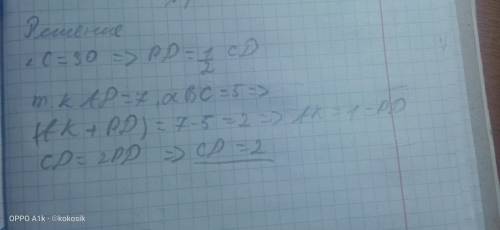 Решение
∠C=30 => PD=1/2 CD
т.к AD=7, а BC=5 =>
(AK+PD)=7-5=2 => AK=1=PD
CD=2PD => CD=2
OPPO A1k · @kokosik